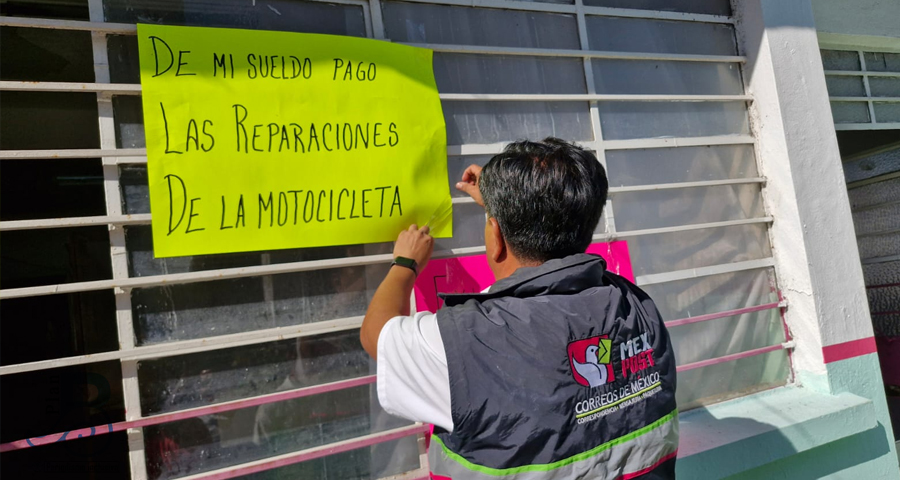 DE MI SUELDO PAGO
LAS REPARACIONES
DE LA MOTOCICLETA
MEX
POST
CORREOS DE MÉXICO